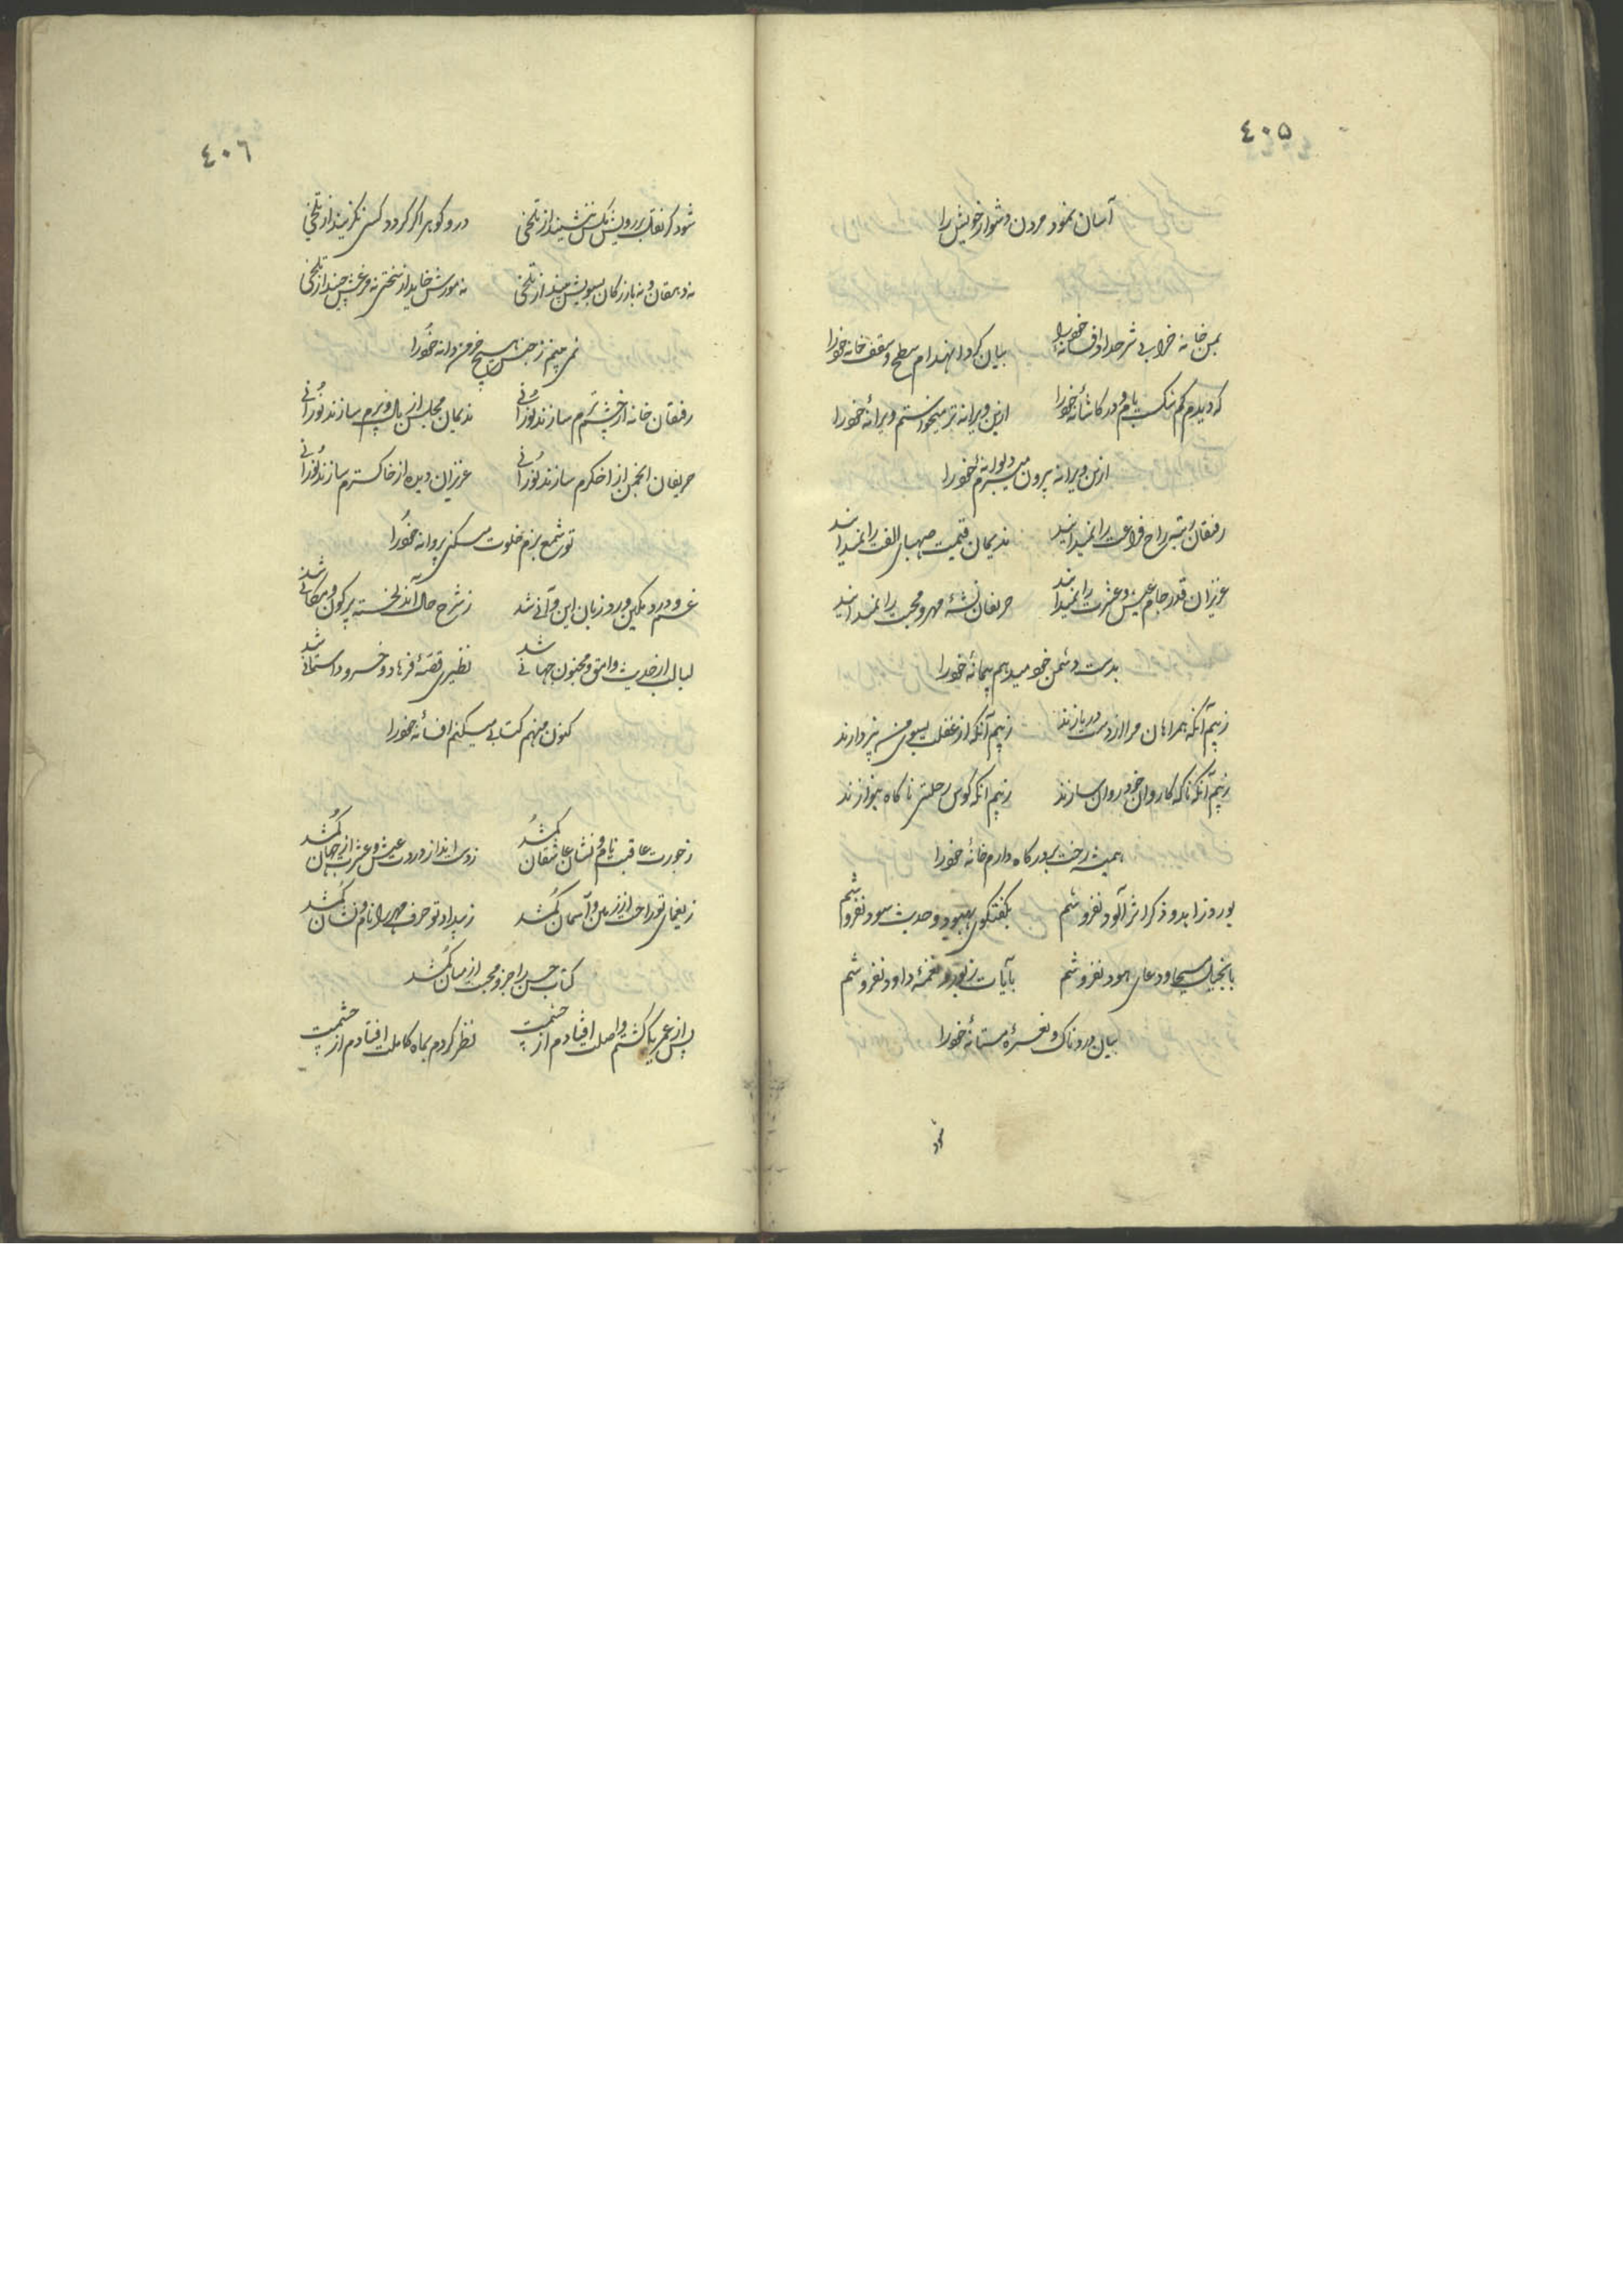 ٤٠٥
آسان نمود مردن دشوار خویش را
بمن خانه خرابی شرح داد افسانهٔ خود را
بیان کرد انهدام سطح و سقف خانهٔ خود را
که دیدم کم شکست بام و در کاشانهٔ خود را
ازین ویرانه تر میخواستم ویرانهٔ خود را
ازین ویرانه بیرون میبرم دیوانهٔ خود را
رفیقان رتبهٔ راح فراغت را نمیدانند
ندیمان قیمت صهبای الفت را نمیدانند
عزیزان قدر جام عیش و عشرت را نمیدانند
حریفان نشئهٔ مهر و محبت را نمیدانند
بدست دشمن خود میدهم پیمانهٔ خود را
ز بیم آنکه همراهان مرا از دست در بازند
ز بیم آنکه از غفلت بسوی من نپردازند
ز بیم آنکه ناگه کاروان خود روان سازند
ز بیم آنکه کوس رحلتی ناگاه بنوازند
همیشه رخت بر درگاه دارم خانهٔ خود را
ورد زاهد و ذکر اثر آلود نفروشم
بگفتگوی بهبود و حدیث سود نفروشم
بانجیل مسیحا و دعای هود نفروشم
بآیات زبور و نغمهٔ داود نفروشم
بیان دردناک و نعرهٔ مستانهٔ خود را
٤٠٦
شود گر نقل بر رویش مگس ننشیند از تلخی
درو گوهر اگر گردد کسی نگزیند از تلخی
نه دهقان و نه بازرگان بسویش بیند از تلخی
نه مورش خاید از سختی نه مرغش چیند از تلخی
نمی بینم ز جنس هیچ خرمن دانه خود را
رفیقان خانه از چشم ترم سازند نورانی
ندیمان مجلس از بال و پرم سازند نورانی
حریفان انجمن از اخگرم سازند نورانی
عزیزان دیده از خاکسترم سازند نورانی
تو شمع بزم خلوت میکنی پروانه خود را
غم و درد مکین ورد زبان این و آنی شد
ز شرح حال آند لخسته پر کون و مکانی شد
لبالب از حدیث وامق و مجنون جهانی شد
نظیری قصهٔ فرهاد و خسرو داستانی شد
کنون منهم کتابی میکنم افسانهٔ خود را
ز جورت عاقبت نام و نشان عاشقان گمشد
ز دست انداز دورت عیش و عشرت از جهان گمشد
ز یغمای تو راحت از زمین و آسمان گمشد
ز بیداد تو حرف مهر را نام و نشان گمشد
کتاب حسن را جزو محبت از میان گمشد
پس از عمری که گشتم واصلت افتادم از چشمت
نظر کردم بماه کاملت افتادم از چشمت